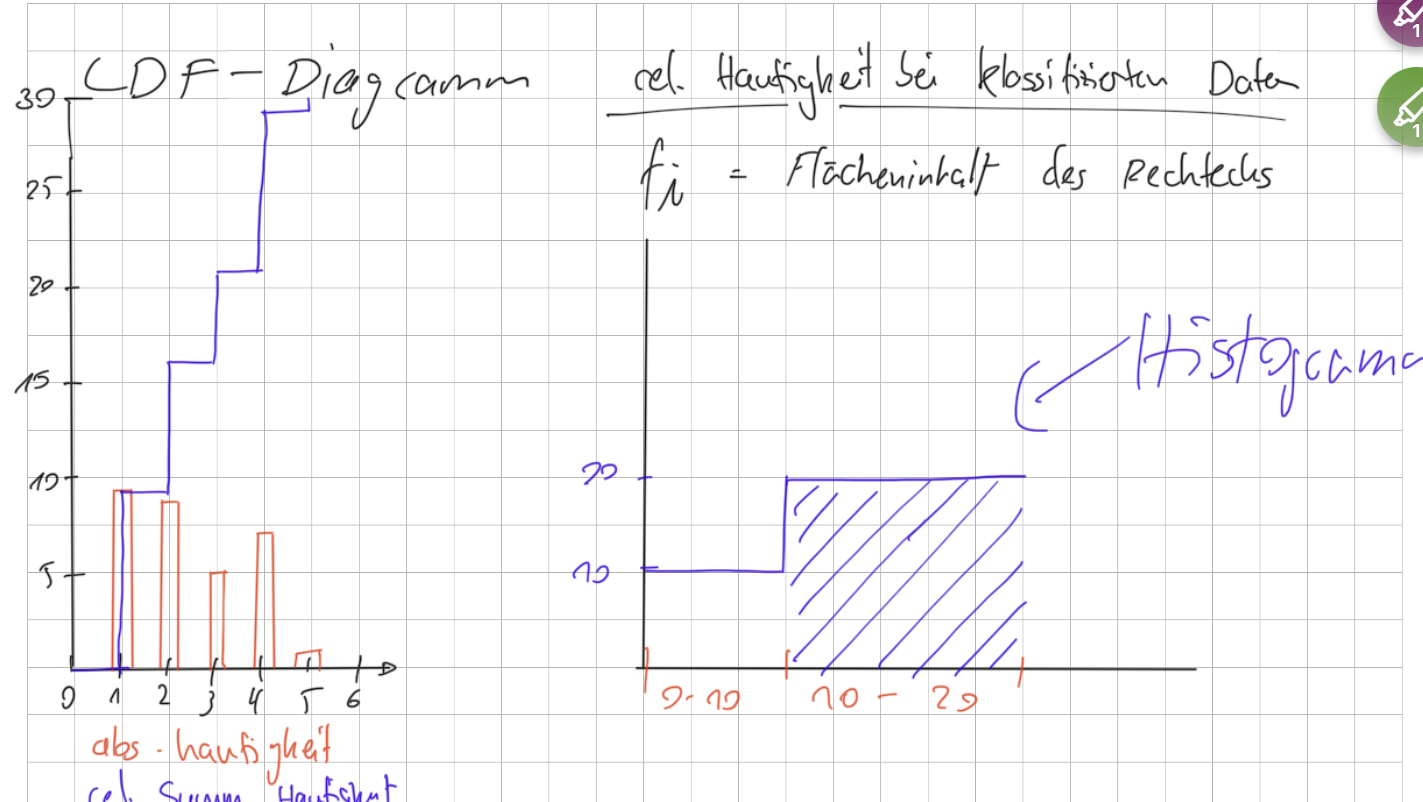 CDF - Diagramm
30
25
20
15
10
5
0 1 2 3 4 5 6
abs. haufigheit
rel. Summ Haufigheit
rel. Haufigheit bei klassifizierten Daten
fi = Flächeninhalt des Rechtecks
Histogramm
20
10
0-10 10 - 20
1
1